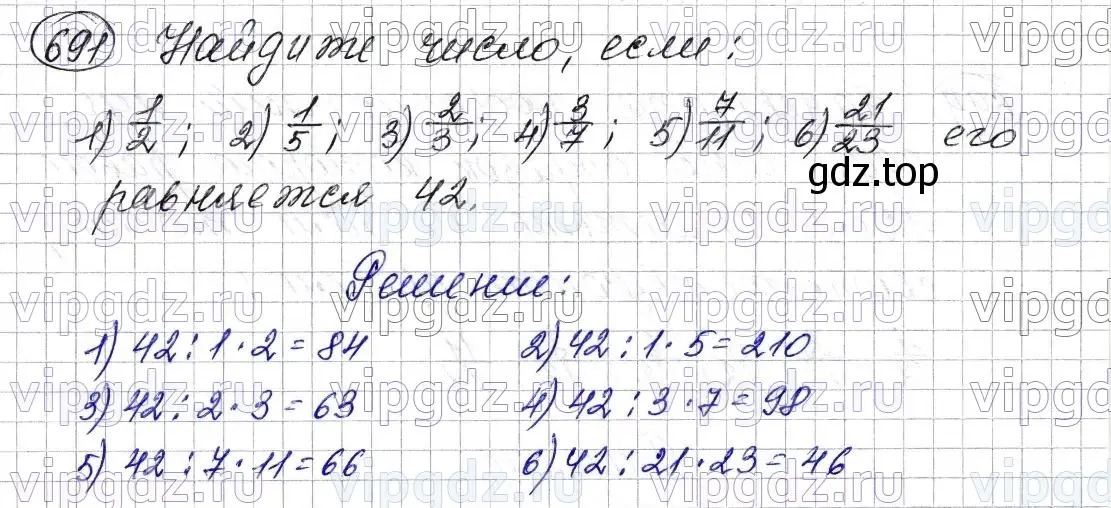 691 Найдите число, если:
1) 1/2; 2) 1/5; 3) 2/3; 4) 3/7; 5) 7/11; 6) 21/23 его
gdz.top
равняется 42.
Решение:
1) 42 : 1 · 2 = 84 2) 42 : 1 · 5 = 210
3) 42 : 2 · 3 = 63 4) 42 : 3 · 7 = 98
5) 42 : 7 · 11 = 66 6) 42 : 21 · 23 = 46
vipgdz.ru